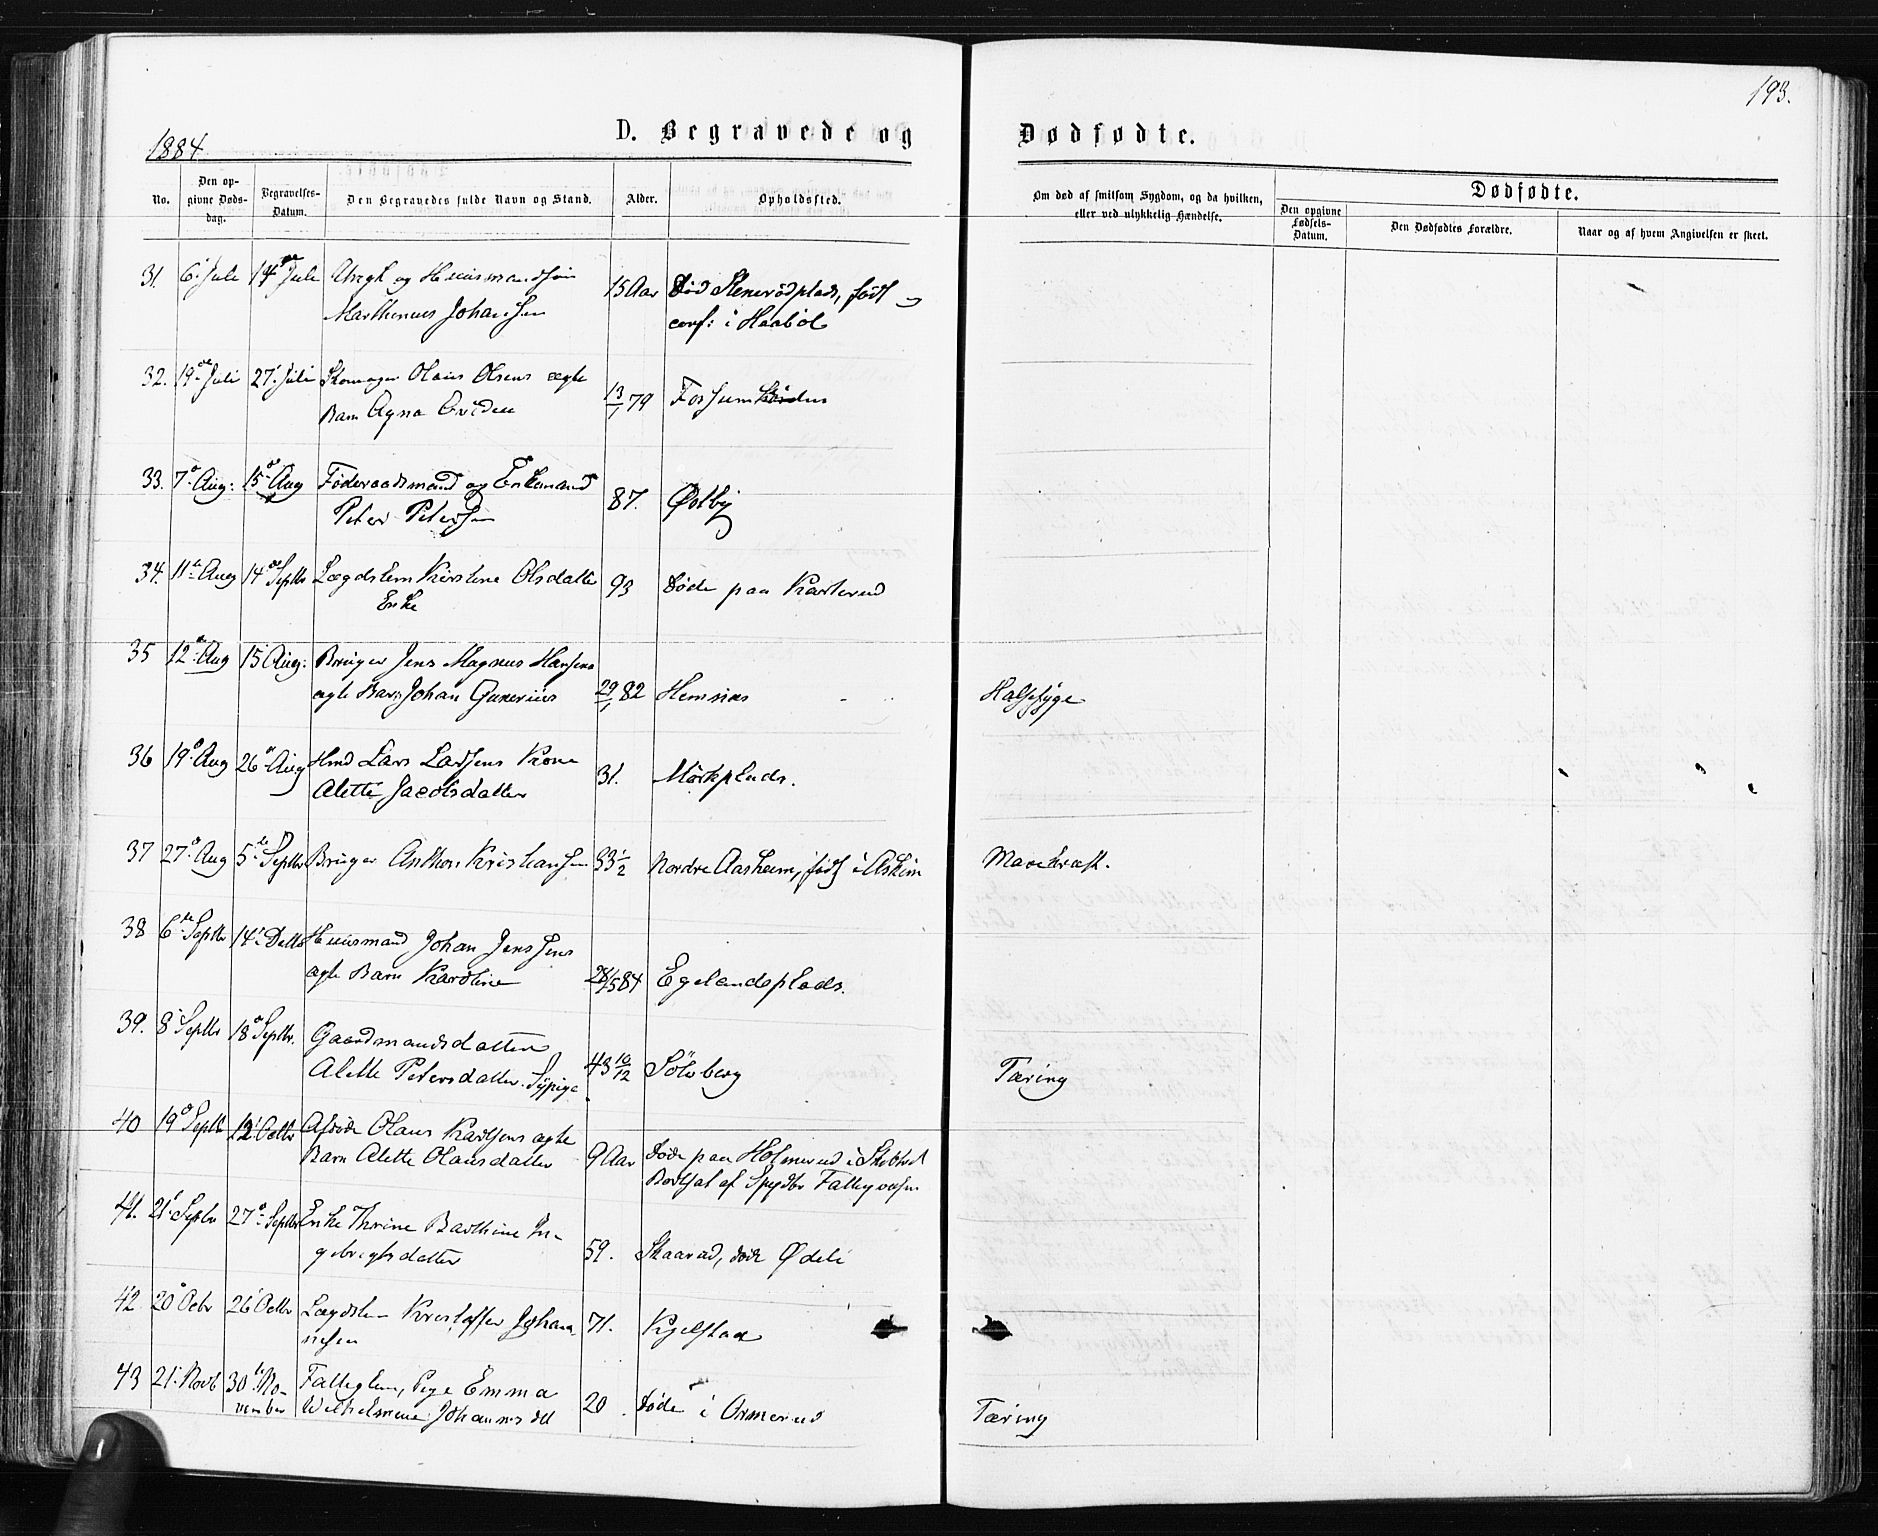 193.
1884
D. Begravede og Dødfødte.
No.
Den opgivne Dødsdag.
Begravelses-Datum.
Den Begravedes fulde Navn og Stand.
Alder.
Opholdssted.
Om død af smitsom Sygdom, og da hvilken, eller ved ulykkelig Hændelse.
Dødfødte.
Den opgivne Fødsels-Datum.
Den Dødfødtes Forældre.
Naar og af hvem Angivelsen er skeet.
31. 6. Juli 14de Juli Ungk og Huusmandssøn 15 Aar Død Stenerödplads, født
Marthinius Johansen conf: i Haabøl
32. 19de Juli 27. Juli Skomager Olaus Olsens ægte 13/1 79 Fossum
Barn Agna
33. 7de Aug: 15de Aug Føderaadsmand og Enkemand 87. Østby
Peter Petersen
34. 11te Aug 14de Septbr Lægdslem Kirstine Olsdatter 93 Døde paa Karlsrud
Enke
35 12te Aug 15 Aug: Bruger Jens Magnus Hansens
ægte Barn Johan Gunerius 29/1 82 Hemnæs Halssyge
36 19de Aug 26de Aug Hmd Lars Larsens Kone 31. Mörkplads.
Alette Jacobsdatter
37 27de Aug 5te Septbr Bruger Anthon Kristiansen 33 1/2 Nordre Aasheim, født i Askim Mavekræft.
38 6te Septbr 14. Dette Huusmand Johan Jenssens
ægte Barn Karoline 28/5 84 Egelandsplads.
39. 8. Septbr 18de Septbr. Gaardmandsdatter
Alette Petersdatter. Sypige. 43 10/12 Sölvberg Tæring
40 19de Septb 12. Octbr Afdøde Olaus Karlsens ægte
Barn Alette Olausdatter 9 Aar Døde paa Holmerud i
Bortsat af
41. 21. Septbr 27de Septbr Enke Thrine Barthine In-
gebrigtsdatter 59. Skaarud, døde Ødeli
42. 20de Ocbr 26. Octbr Lægdslem Kristoffer Johan-
nesen 71. Kjelstad
43 21. Novb 30te No- Fattiglem, Pige Emma
vember Wilhelmine Johannesdtt 20 Døde i Ormerud Tæring